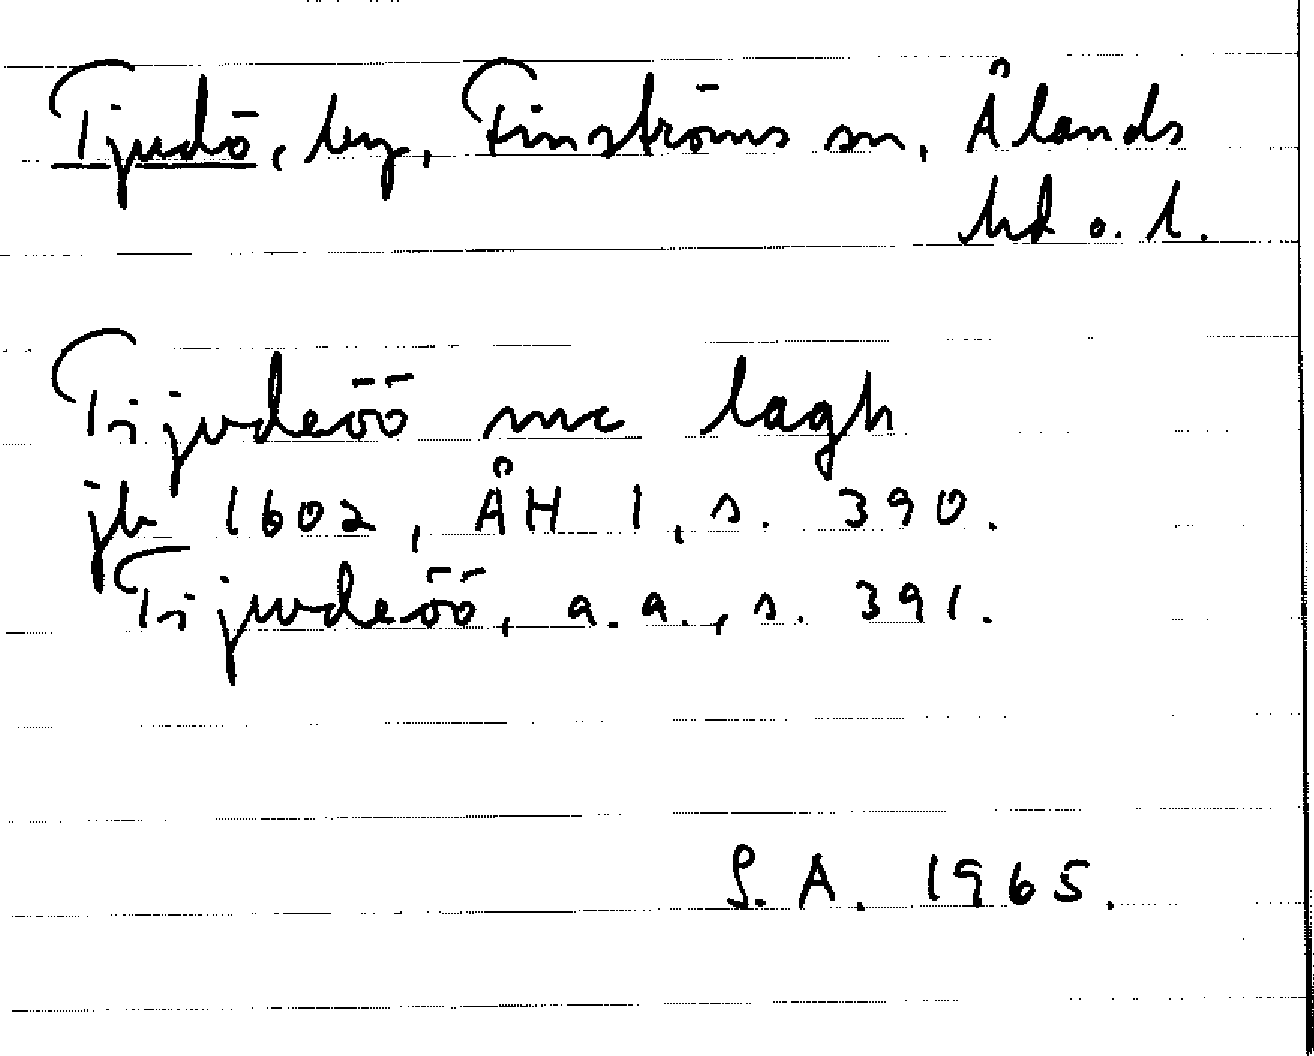 Tjudö, by, Finströms sn, Ålands
hd o. l.
Tijudeöö mc lagh
jb 1602, ÅH 1, s. 390.
Tijudeöö, a.a., s. 391.
S.A. 1965.